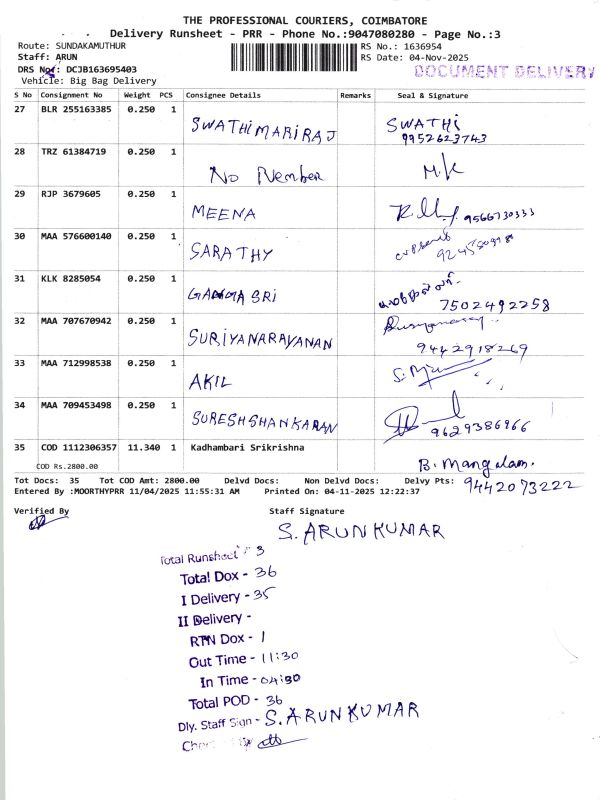 THE PROFESSIONAL COURIERS, COIMBATORE
Delivery Runsheet - PRR - Phone No.:9047080280 - Page No.:3
Route: SUNDAKAMUTHUR RS No.: 1636954
Staff: ARUN RS Date: 04-Nov-2025
DRS No: DCJB163695403 DOCUMENT DELIVERY
Vehicle: Big Bag Delivery
S No Consignment No Weight PCS Consignee Details Remarks Seal & Signature
27 BLR 255163385 0.250 1 SWATHIMARIRAJ SWATHI
9952623743
28 TRZ 61384719 0.250 1 No Nember M.K
29 RJP 3679605 0.250 1 MEENA 9566730333
30 MAA 576600140 0.250 1 SARATHY
31 KLK 8285054 0.250 1 SRI 7502492258
32 MAA 707670942 0.250 1 SURIYANARAYANAN
9442918269
33 MAA 712998538 1 0.250 AKIL
34 MAA 709453498 0.250 1 SURESHSHANKARAN 9629386966
35 COD 1112306357 11.340 1 Kadhambari Srikrishna
COD Rs.2800.00 B. Mangalam.
Tot Docs: 35 Tot COD Amt: 2800.00 Delvd Docs: Non Delvd Docs: Delvy Pts: 9442073222
Entered By :MOORTHYPRR 11/04/2025 11:55:31 AM Printed On: 04-11-2025 12:22:37
Verified By Staff Signature
S. ARUN KUMAR
Total Runsheet 3
Total Dox - 36
I Delivery - 35
II Delivery -
RTN Dox - 1
Out Time - 11:30
In Time - 04:30
Total POD - 36
Dly. Staff Sign - S. ARUN KUMAR